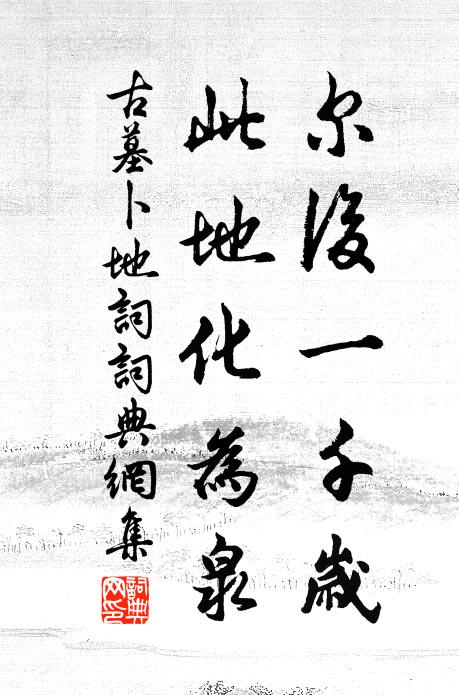 尔後一千歲
此地化為泉
古墓卜地詞詞典網集
詞典